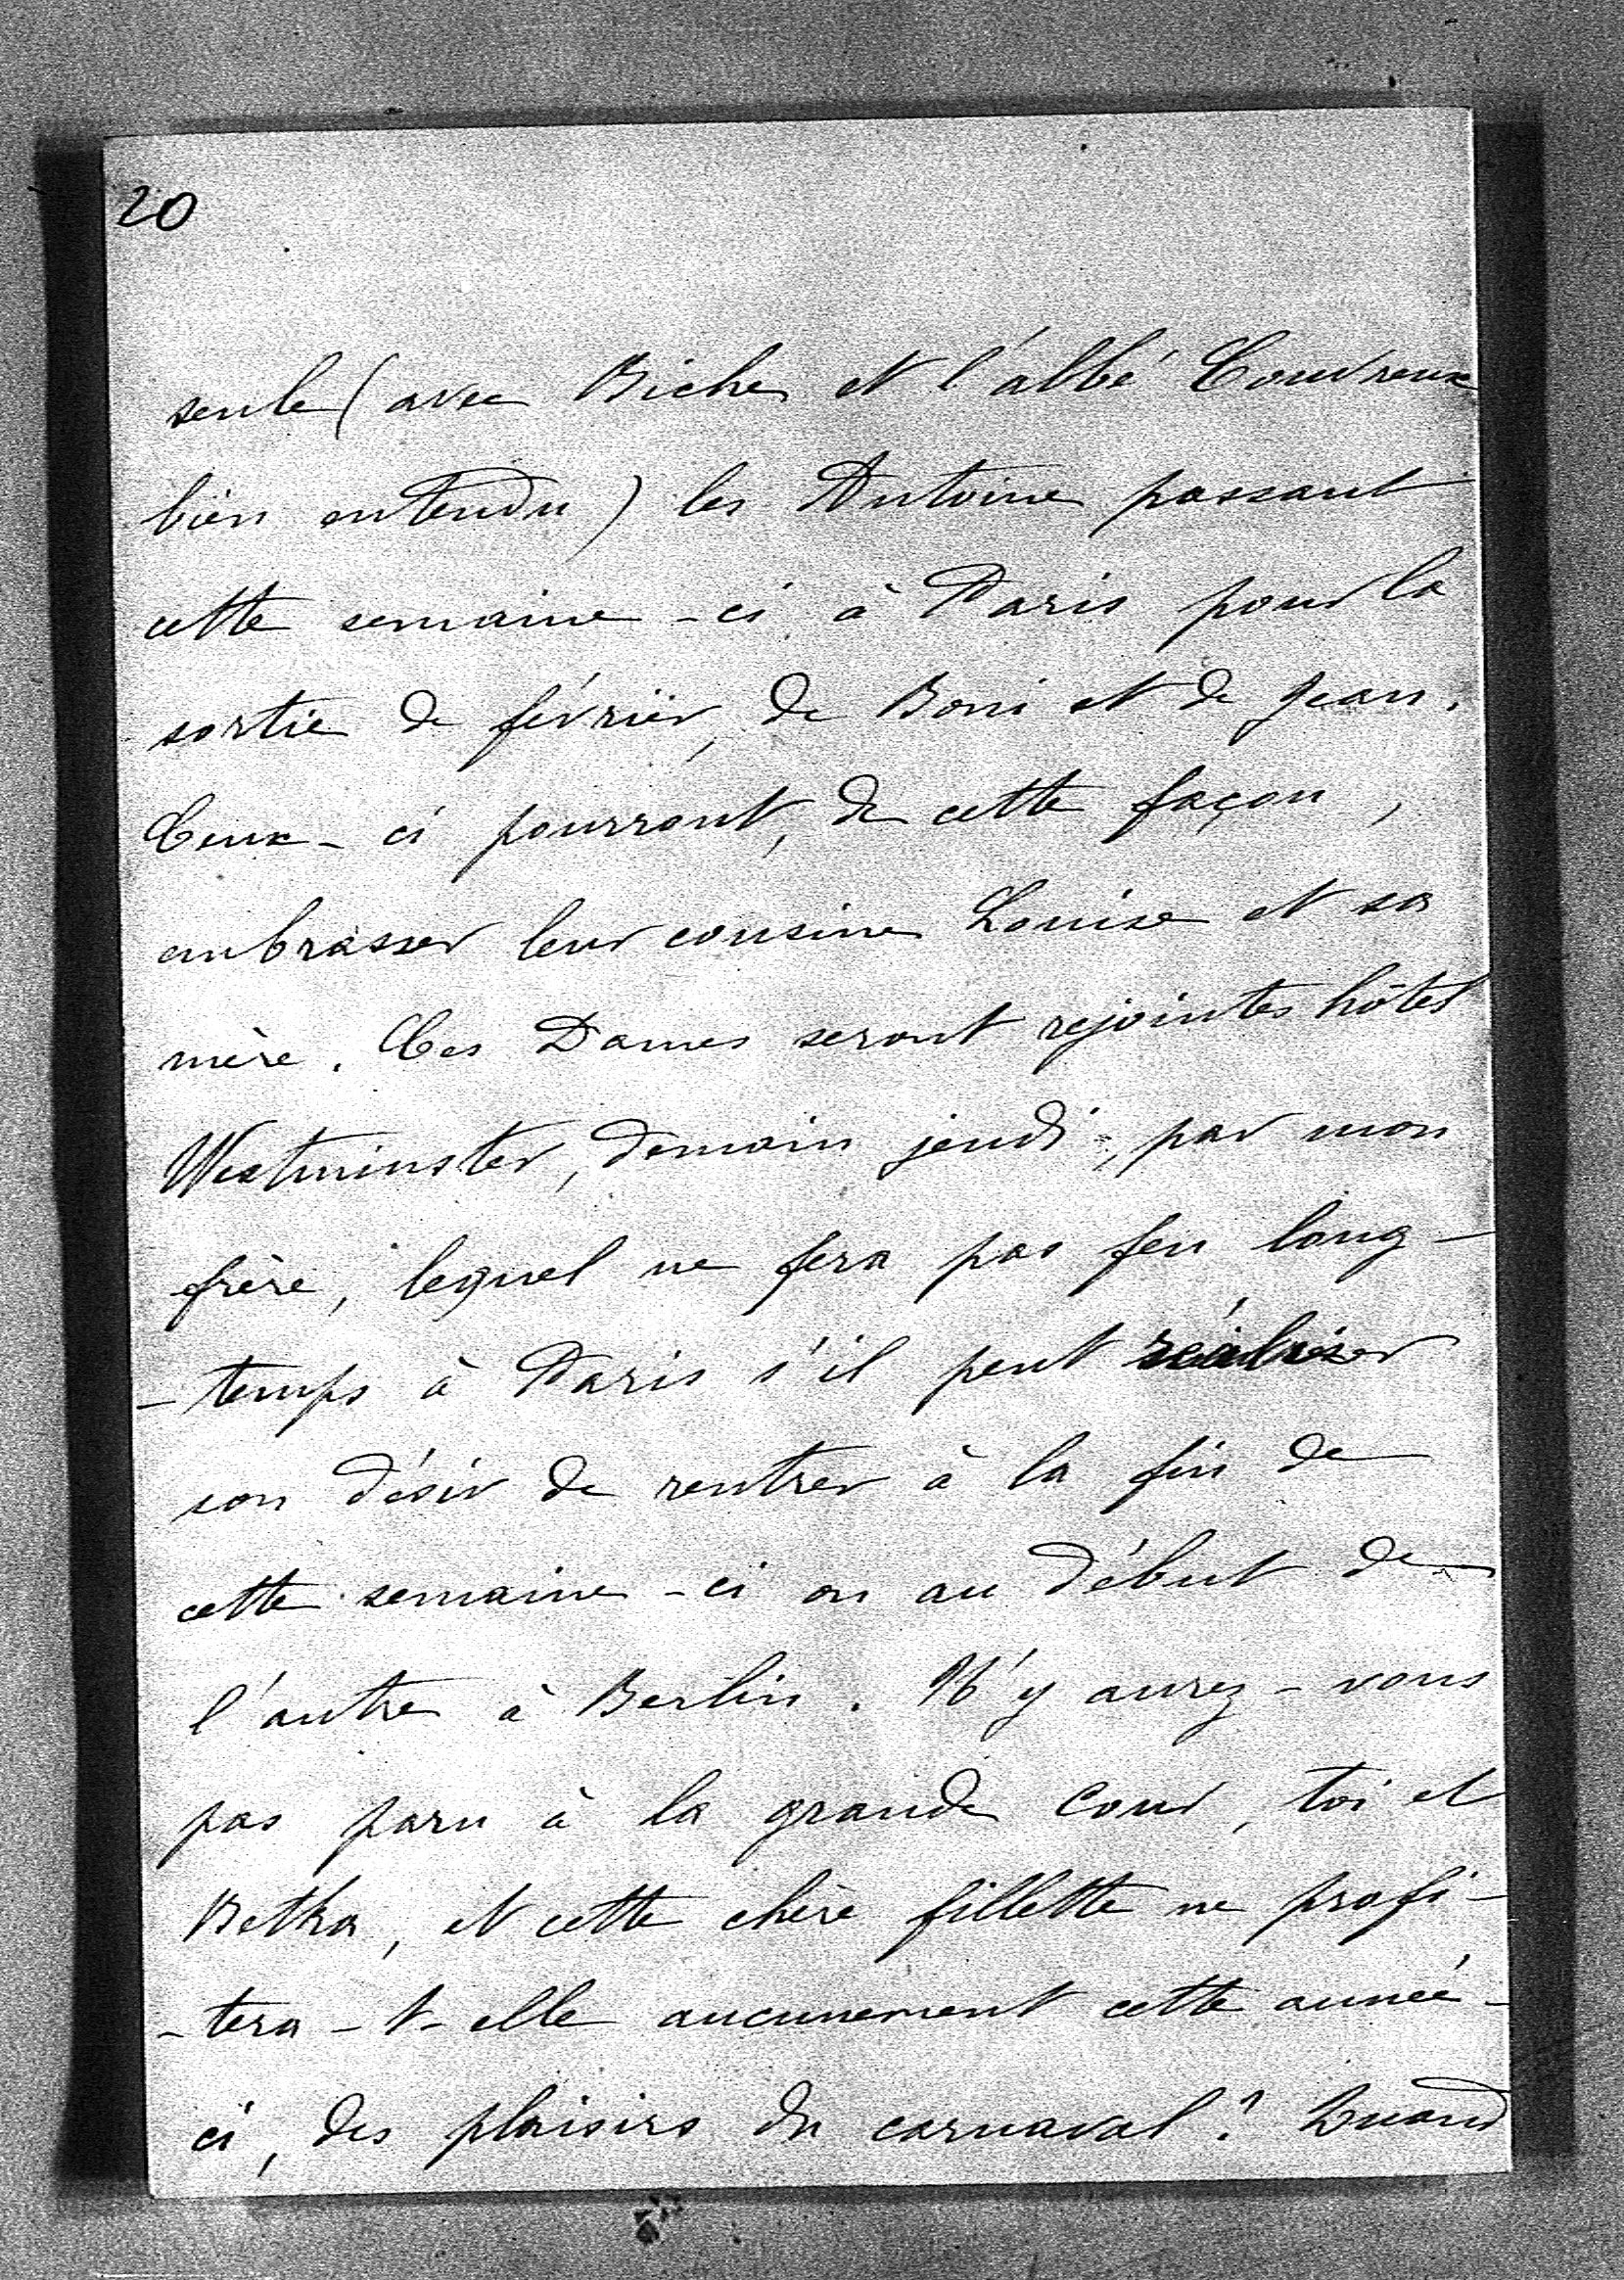 20
seule (avec Biche et l'abbé Couvreux
bien entendu) les Antoine passant
cette semaine-ci à Paris pour la
sortie de février, de Boni et de Jean.
Ceux-ci pourront, de cette façon,
embrasser leur cousine Louise et sa
mère. Ces Dames seront rejointes hôtel
Westminster, demain jeudi, par mon
frère, lequel ne fera pas feu long-
-temps à Paris s'il peut réaliser
son désir de rentrer à la fin de
cette semaine-ci ou au début de
l'autre à Berlin. N'y aurez-vous
pas paru à la grande Cour, toi et
Betka, et cette chère fillette ne profi-
-tera-t-elle aucunement cette année-
ci, des plaisirs du carnaval? Quand